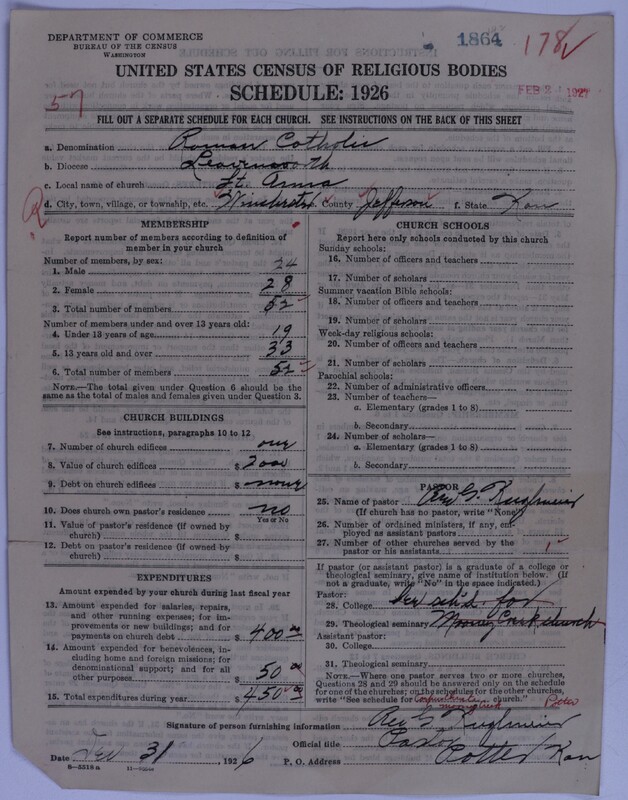 DEPARTMENT OF COMMERCE
BUREAU OF THE CENSUS
WASHINGTON
1864
178
FEB 2 1927
UNITED STATES CENSUS OF RELIGIOUS BODIES
SCHEDULE: 1926
57
FILL OUT A SEPARATE SCHEDULE FOR EACH CHURCH. SEE INSTRUCTIONS ON THE BACK OF THIS SHEET
a. Denomination Roman Catholic
b. Diocese Leavenworth
c. Local name of church St. Anns
d. City, town, village, or township, etc. Winchester County Jefferson f. State Kan
R
MEMBERSHIP
Report number of members according to definition of
member in your church
Number of members, by sex:
1. Male 24
2. Female 28
3. Total number of members 52
Number of members under and over 13 years old:
4. Under 13 years of age 19
5. 13 years old and over 33
6. Total number of members 52
NOTE.—The total given under Question 6 should be
the same as the total of males and females given under Question 3.
CHURCH BUILDINGS
See instructions, paragraphs 10 to 12
7. Number of church edifices one
8. Value of church edifices $ 2000
9. Debt on church edifices $ none
10. Does church own pastor's residence no
Yes or No
11. Value of pastor's residence (if owned by
church) $
12. Debt on pastor's residence (if owned by
church) $
EXPENDITURES
Amount expended by your church during last fiscal year
13. Amount expended for salaries, repairs,
and other running expenses; for im-
provements or new buildings; and for
payments on church debt $ 400 00
14. Amount expended for benevolences, in-
cluding home and foreign missions; for
denominational support; and for all
other purposes $ 50 00
15. Total expenditures during year $ 450 00
CHURCH SCHOOLS
Report here only schools conducted by this church
Sunday schools:
16. Number of officers and teachers
17. Number of scholars
Summer vacation Bible schools:
18. Number of officers and teachers
19. Number of scholars
Week-day religious schools:
20. Number of officers and teachers
21. Number of scholars
Parochial schools:
22. Number of administrative officers
23. Number of teachers—
a. Elementary (grades 1 to 8)
b. Secondary
24. Number of scholars—
a. Elementary (grades 1 to 8)
b. Secondary
PASTOR
25. Name of pastor Rev G.
(If church has no pastor, write "None")
26. Number of ordained ministers, if any, em-
ployed as assistant pastors
27. Number of other churches served by the
pastor or his assistants 1
If pastor (or assistant pastor) is a graduate of a college or
theological seminary, give name of institution below. (If
not a graduate, write "No" in the space indicated.)
Pastor:
28. College See sched. for
29. Theological seminary church
Assistant pastor:
30. College
31. Theological seminary
NOTE.—Where one pastor serves two or more churches,
Questions 28 and 29 should be answered only on the schedule
for one of the churches; on the schedules for the other churches,
write "See schedule for church."
Potter
Signature of person furnishing information Rev G.
Official title Pastor
Date 31, 1926 P. O. Address Potter Kan
8—5518 a